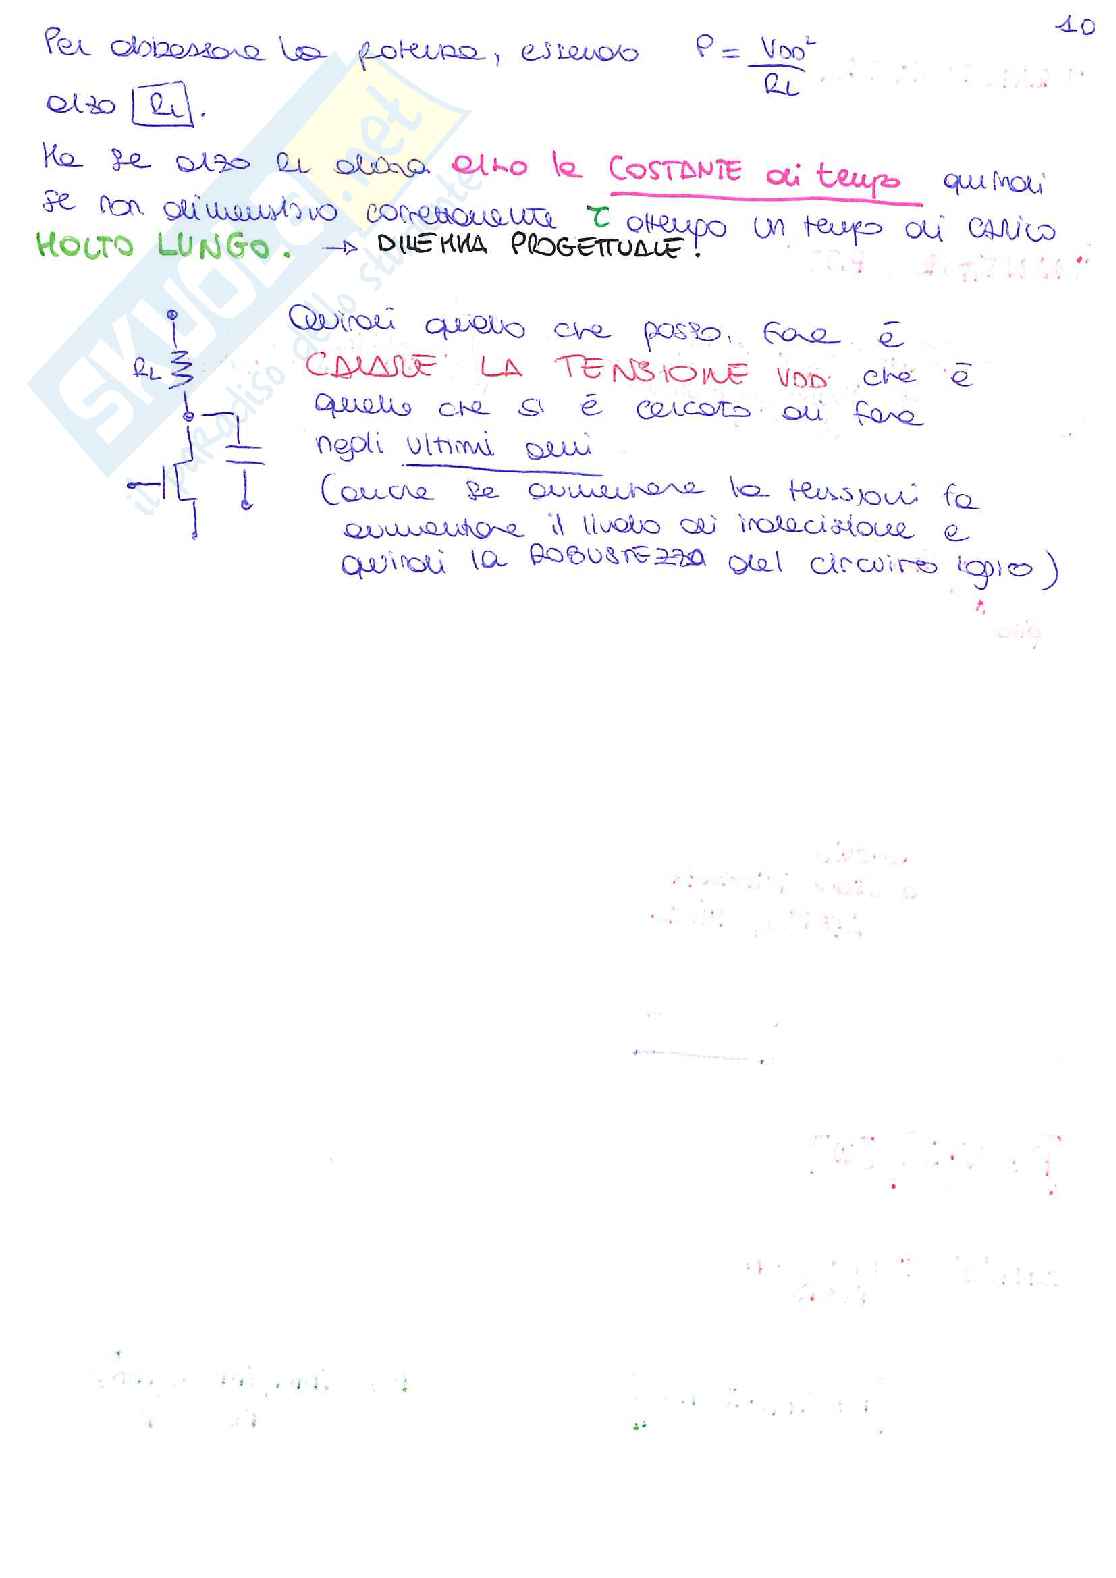 10
Per abbassare la potenza, essendo P = VDD² / RL
alzo RL.
Ma se alzo RL allora alzo la COSTANTE di tempo quindi
se non dimensiono correttamente τ ottengo un tempo di CARICO
MOLTO LUNGO. → DILEMMA PROGETTUALE!
Quindi quello che posso fare è
RL CALARE LA TENSIONE VDD che è
quello che si è cercato di fare
negli ultimi anni
(anche se aumentare la tensioni fa
aumentare il livello di indecisione e
quindi la ROBUSTEZZA del circuito logico)
SKUOLA.net
il paradiso dello studente